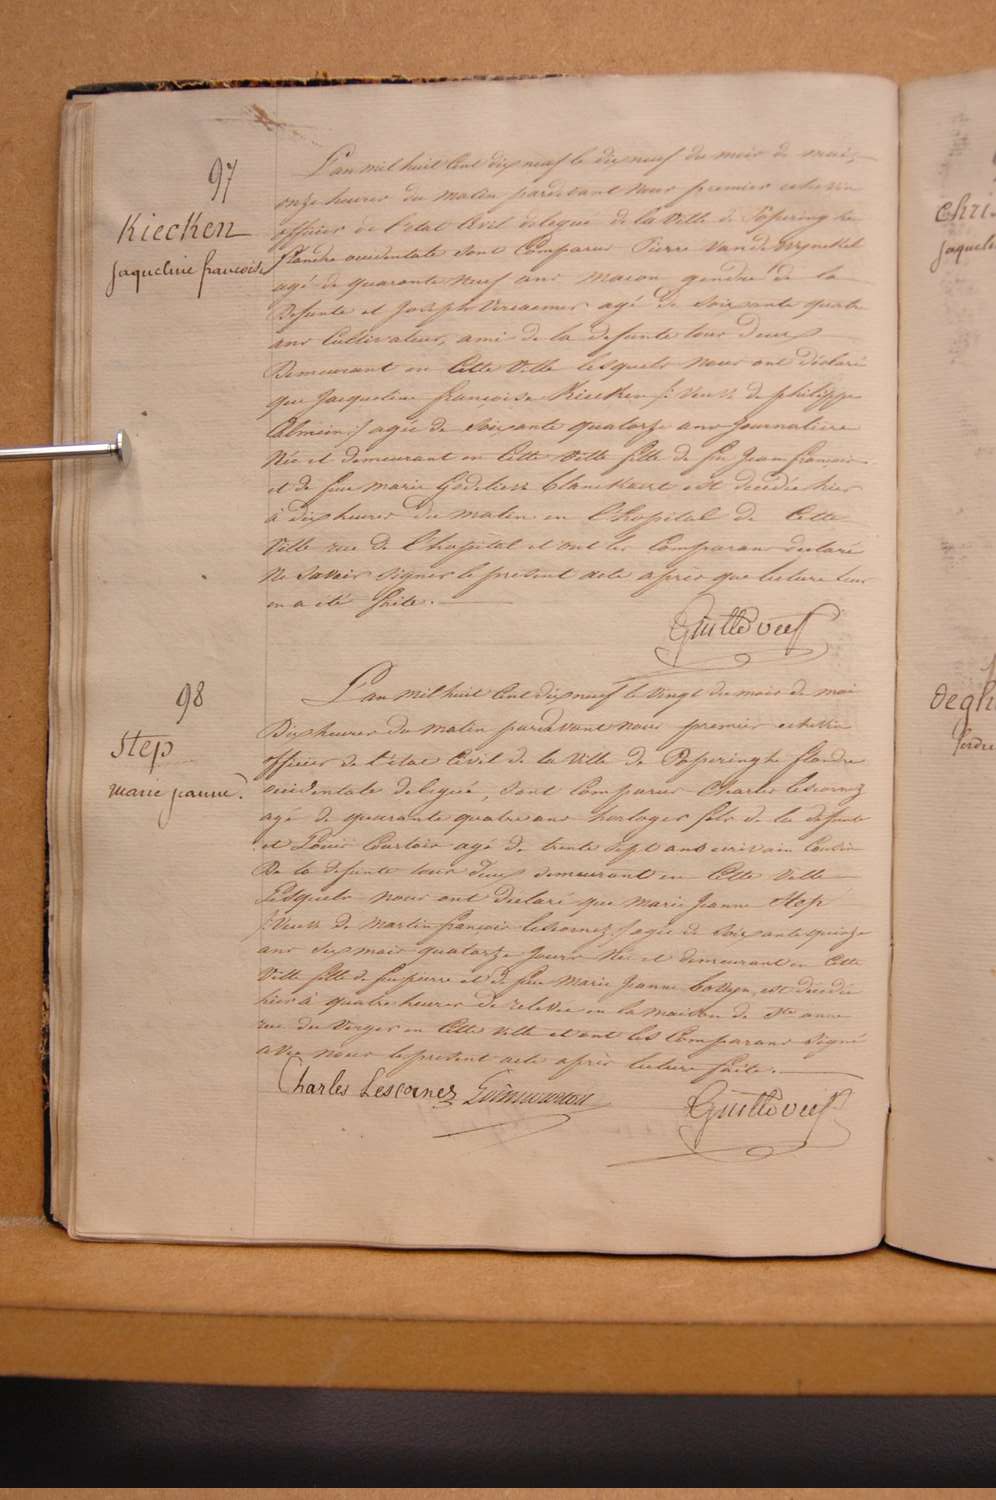 97
Kiecken
jaqueline francoise
L'an mil huit Cent dix neuf le dix neuf du mois de mai,
onze heures du matin pardevant nous premier echevin
officier de l'etat Civil delegué de la Ville de Poperinghe
flandre occidentale sont Comparus Pierre
agé de quarante neuf ans macon, gendre de la
Defunte et Joseph agé de Soixante quatre
ans Cultivateur, ami de la defunte tous Deux
Demeurant en Cette Ville lesquels nous ont déclaré
que Jacqueline françoise Kiecken /: Veuve de philippe
agée de Soixante quatorze ans journaliere
Née et demeurant en Cette Ville fille de feu Jean francois
et de feue marie est decedée hier
à dix heures du matin en l'hopital de Cette
Ville rue de l'hopital et ont les Comparans declaré
Ne Savoir Signer le present acte après que lecture leur
en a été faite.
98
Step
marie jeanne
L'an mil huit Cent dix neuf le vingt du mois de mai
Dix heures du matin pardevant nous premier echevin
officier de l'etat Civil de la Ville de Poperinghe flandre
occidentale delegué, Sont Comparus Charles Lescornez
agé de quarante quatre ans horloger fils de la defunte
et Louis Courtois agé de trente Sept ans ecrivain Cousin
De la defunte tous Deux demeurant en Cette Ville
Lesquels nous ont Déclaré que Marie Jeanne Step
/: Veuve de Martin françois Lescornez :/ agée de Soixante quinze
ans Six mois quatorze jours Née et demeurant en Cette
Ville fille de feu pierre et de feue Marie Jeanne est décedée
hier à quatre heures de relevée en la maison de Ste anne
rue du Verger en Cette Ville et ont les Comparans Signé
avec nous le present acte après lecture faite.
Charles Lescornez
Chri
jaqueli
Degh